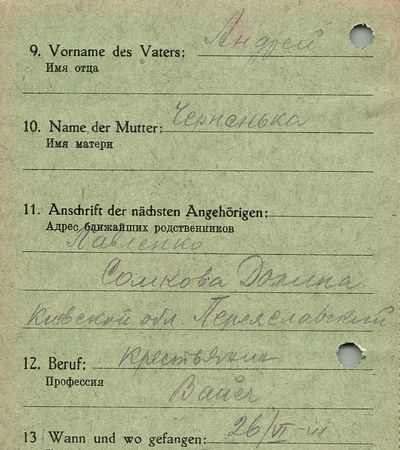 9. Vorname des Vaters: Андрей
Имя отца
10. Name der Mutter: Черненька
Имя матери
11. Anschrift der nächsten Angehörigen:
Адрес ближайших родственников
Павленко
Сомкова Долина
Киевской обл. Переяславский
12. Beruf: крестьянин
Профессия
Bauer
13 Wann und wo gefangen: 26/VI-41